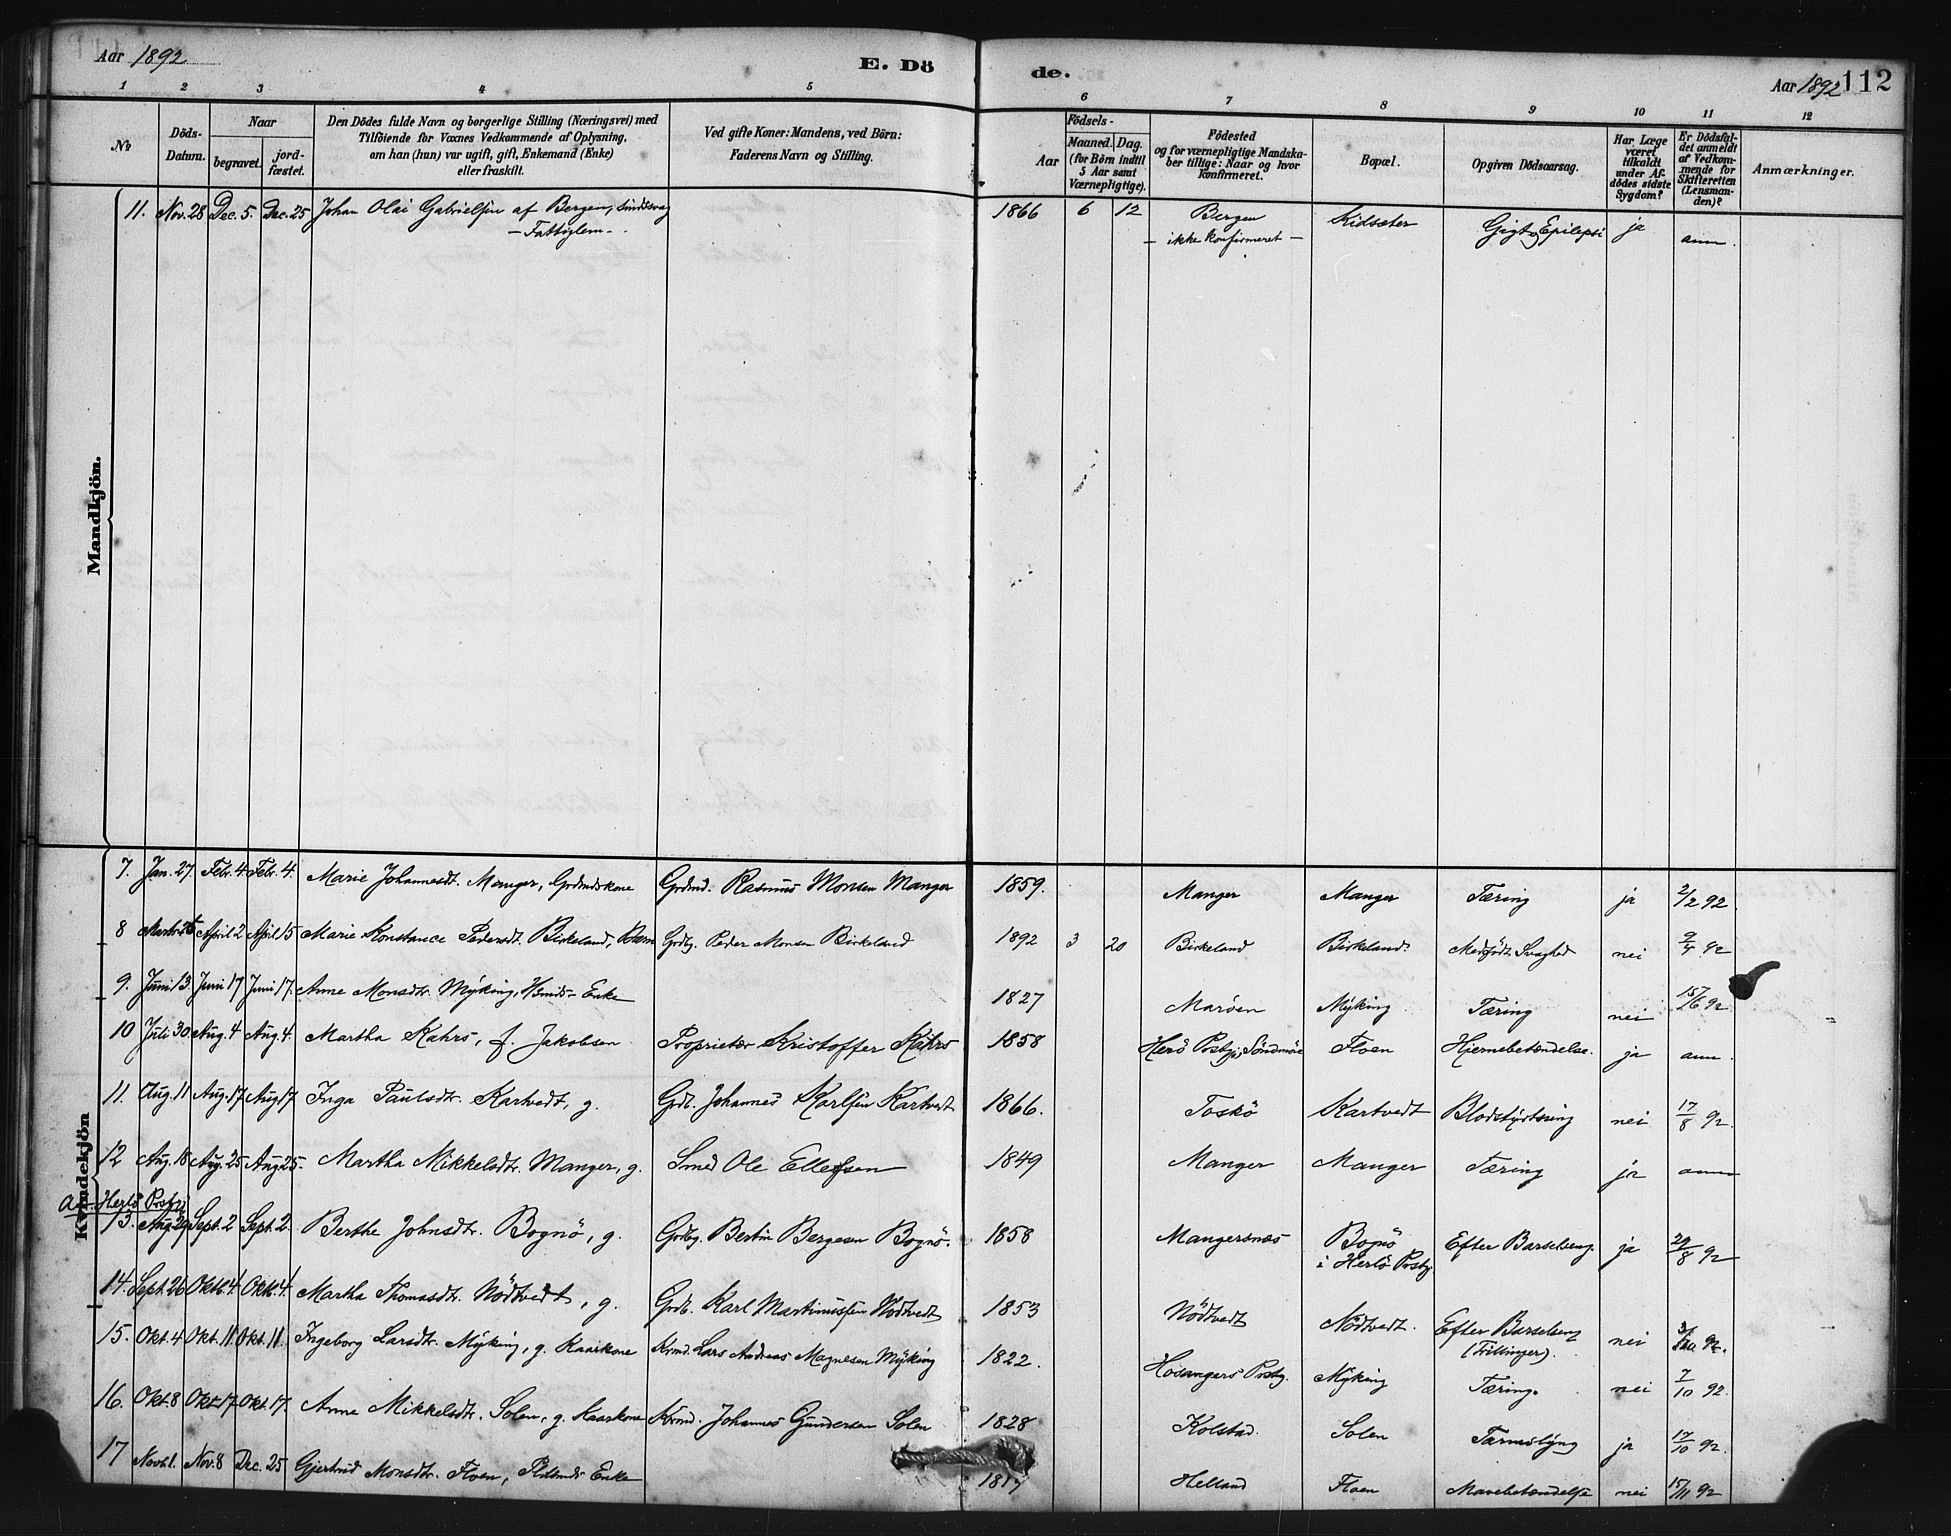 Aar 1892
E. Dö
de.
Aar 1892 112
1 2 3 4 5 6 7 8 9 10 11 12
No
Döds-
Datum.
Naar
begravet.
jord-
fæstet.
Den Dödes fulde Navn og borgerlige Stilling (Næringsvei) med
Tilföiende for Voxnes Vedkommende af Oplysning,
om han (hun) var ugift, gift, Enkemand (Enke)
eller fraskilt.
Ved gifte Koner: Mandens, ved Börn:
Faderens Navn og Stilling.
Födsels-
Aar
Maaned. Dag.
(for Börn indtil
5 Aar samt
Værnepligtige).
Födested
og for værnepligtige Mandska-
ber tillige: Naar og hvor
konfirmeret.
Bopæl.
Opgiven Dödsaarsag.
Har Læge
været
tilkaldt
under Af-
dödes sidste
Sygdom?
Er Dödsfal-
det anmeldt
af Vedkom-
mende for
Skifteretten
(Lensman-
den)?
Anmærkninger.
Mandkjön.
11. Nov. 28 Dec. 5. Dec. 25 Johan Olai Gabrielsen af Bergen, sindssvag 1866 6 12 Bergen Kidsæter Gigt og Epilepsi ja anm.
- Fattiglem - - ikke konfirmeret -
Kvindekjön
7. Jan. 27 Febr. 4. Febr. 4. Marie Johannesdt. Manger, Grdmdskone Grdmd. Rasmus Monsen Manger 1859. Manger Manger Tæring ja 2/2 92.
8 April 2 April 15 Marie Konstance Pedersdt. Birkeland, Barn Grdbg. Peder Monsen Birkeland 1892 3 20 Birkeland Birkeland Medfödt Svaghed nei 9/4 92
9. Juni 13. Juni 17 Juni 17. Anne Monsdtr. Mÿking, Enke 1827 Maröen Mÿking Tæring nei 15/6 92
10 Juli 30 Aug. 4 Aug. 4. Martha Kahrs, f. Jakobsen Proprietær Kristoffer Kahrs 1858 Herö Prstgj. Söndmöre Floen Hjernebetændelse. ja anm.
11. Aug. 11 Aug. 17 Aug 17 Inga Paulsdtr. Kartvedt, g. Gdb. Johannes Karlsen Kartvedt 1866. Toskö Kartvedt Blodstÿrtning nei 17/8 92
12 Aug. 18 Aug. 25 Aug 25. Martha Mikkelsdtr. Manger, g. Smed Ole Ellefsen 1849 Manger Manger Tæring ja anm
Herlö Prstgj.
13. Aug. 29 Sept. 2 Sept. 2. Berthe Johnsdtr. Bognö, g. Grdbg. Bertin Bergesen Bognö. 1858 Mangersnæs Bognö Efter Barselseng. ja 29/8 92
i Herlö Prstgj.
14. Sept. 26 Okt. 4. Okt. 4. Martha Thomasdtr. Nödtvedt, g. Grdb. Karl Martinussen Nödtvedt 1853 Nödtvedt Nödtvedt. Efter Barselseng nei
(Trillinger).
15. Okt. 4 Okt. 11. Okt. 11. Ingeborg Larsdtr. Mÿking, g. Kaarkone Krmd. Lars Andreas Magnesen Mÿking 1822. Hosangers Prstg. Mÿking Tæring. nei 7/10 92.
16. Okt. 8 Okt. 17. Okt. 17. Anne Mikkelsdtr. Solen, g. Kaarkone Krmd. Johannes Gundersen Solen 1828 Kolstad. Solen Tarmslÿng ja 17/10 92.
17 Novb. 1. Nov. 8 Dec. 25 Gjertrud Monsdtr. Floen, Enke 1817 Helland Floen Mavebetændelse nei 15/11 92